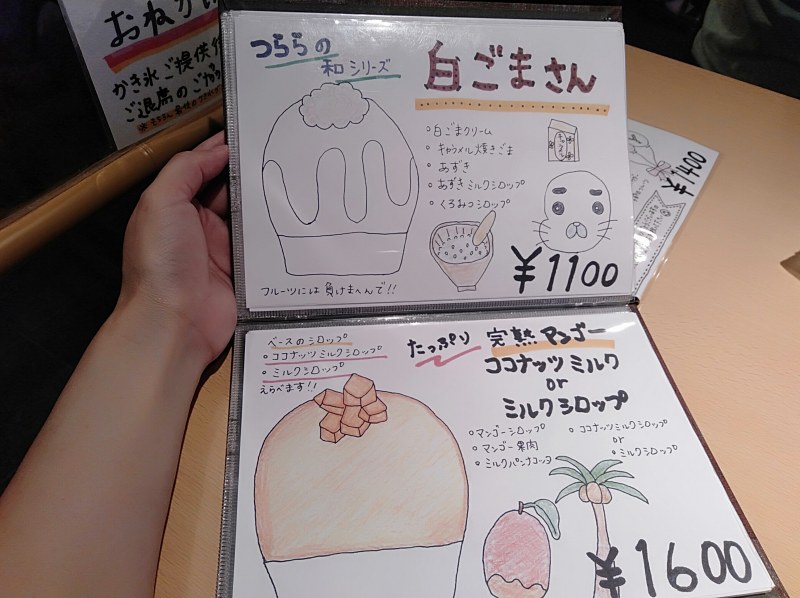 おねがい
かき氷ご提供
ご退席のご
つららの
和シリーズ
白ごまさん
・白ごまクリーム
・キャラメル焼きごま
・あずき
・あずきミルクシロップ
・くろみつシロップ
¥1100
フルーツには負けまへんで!!
¥1400
ベースのシロップ
・ココナッツミルクシロップ
・ミルクシロップ
えらべます!!
たっぷり 完熟マンゴー
ココナッツミルク
or
ミルクシロップ
・マンゴーシロップ
・マンゴー果肉
・ミルクパンナコッタ
・ココナッツミルクシロップ
or
・ミルクシロップ
¥1600